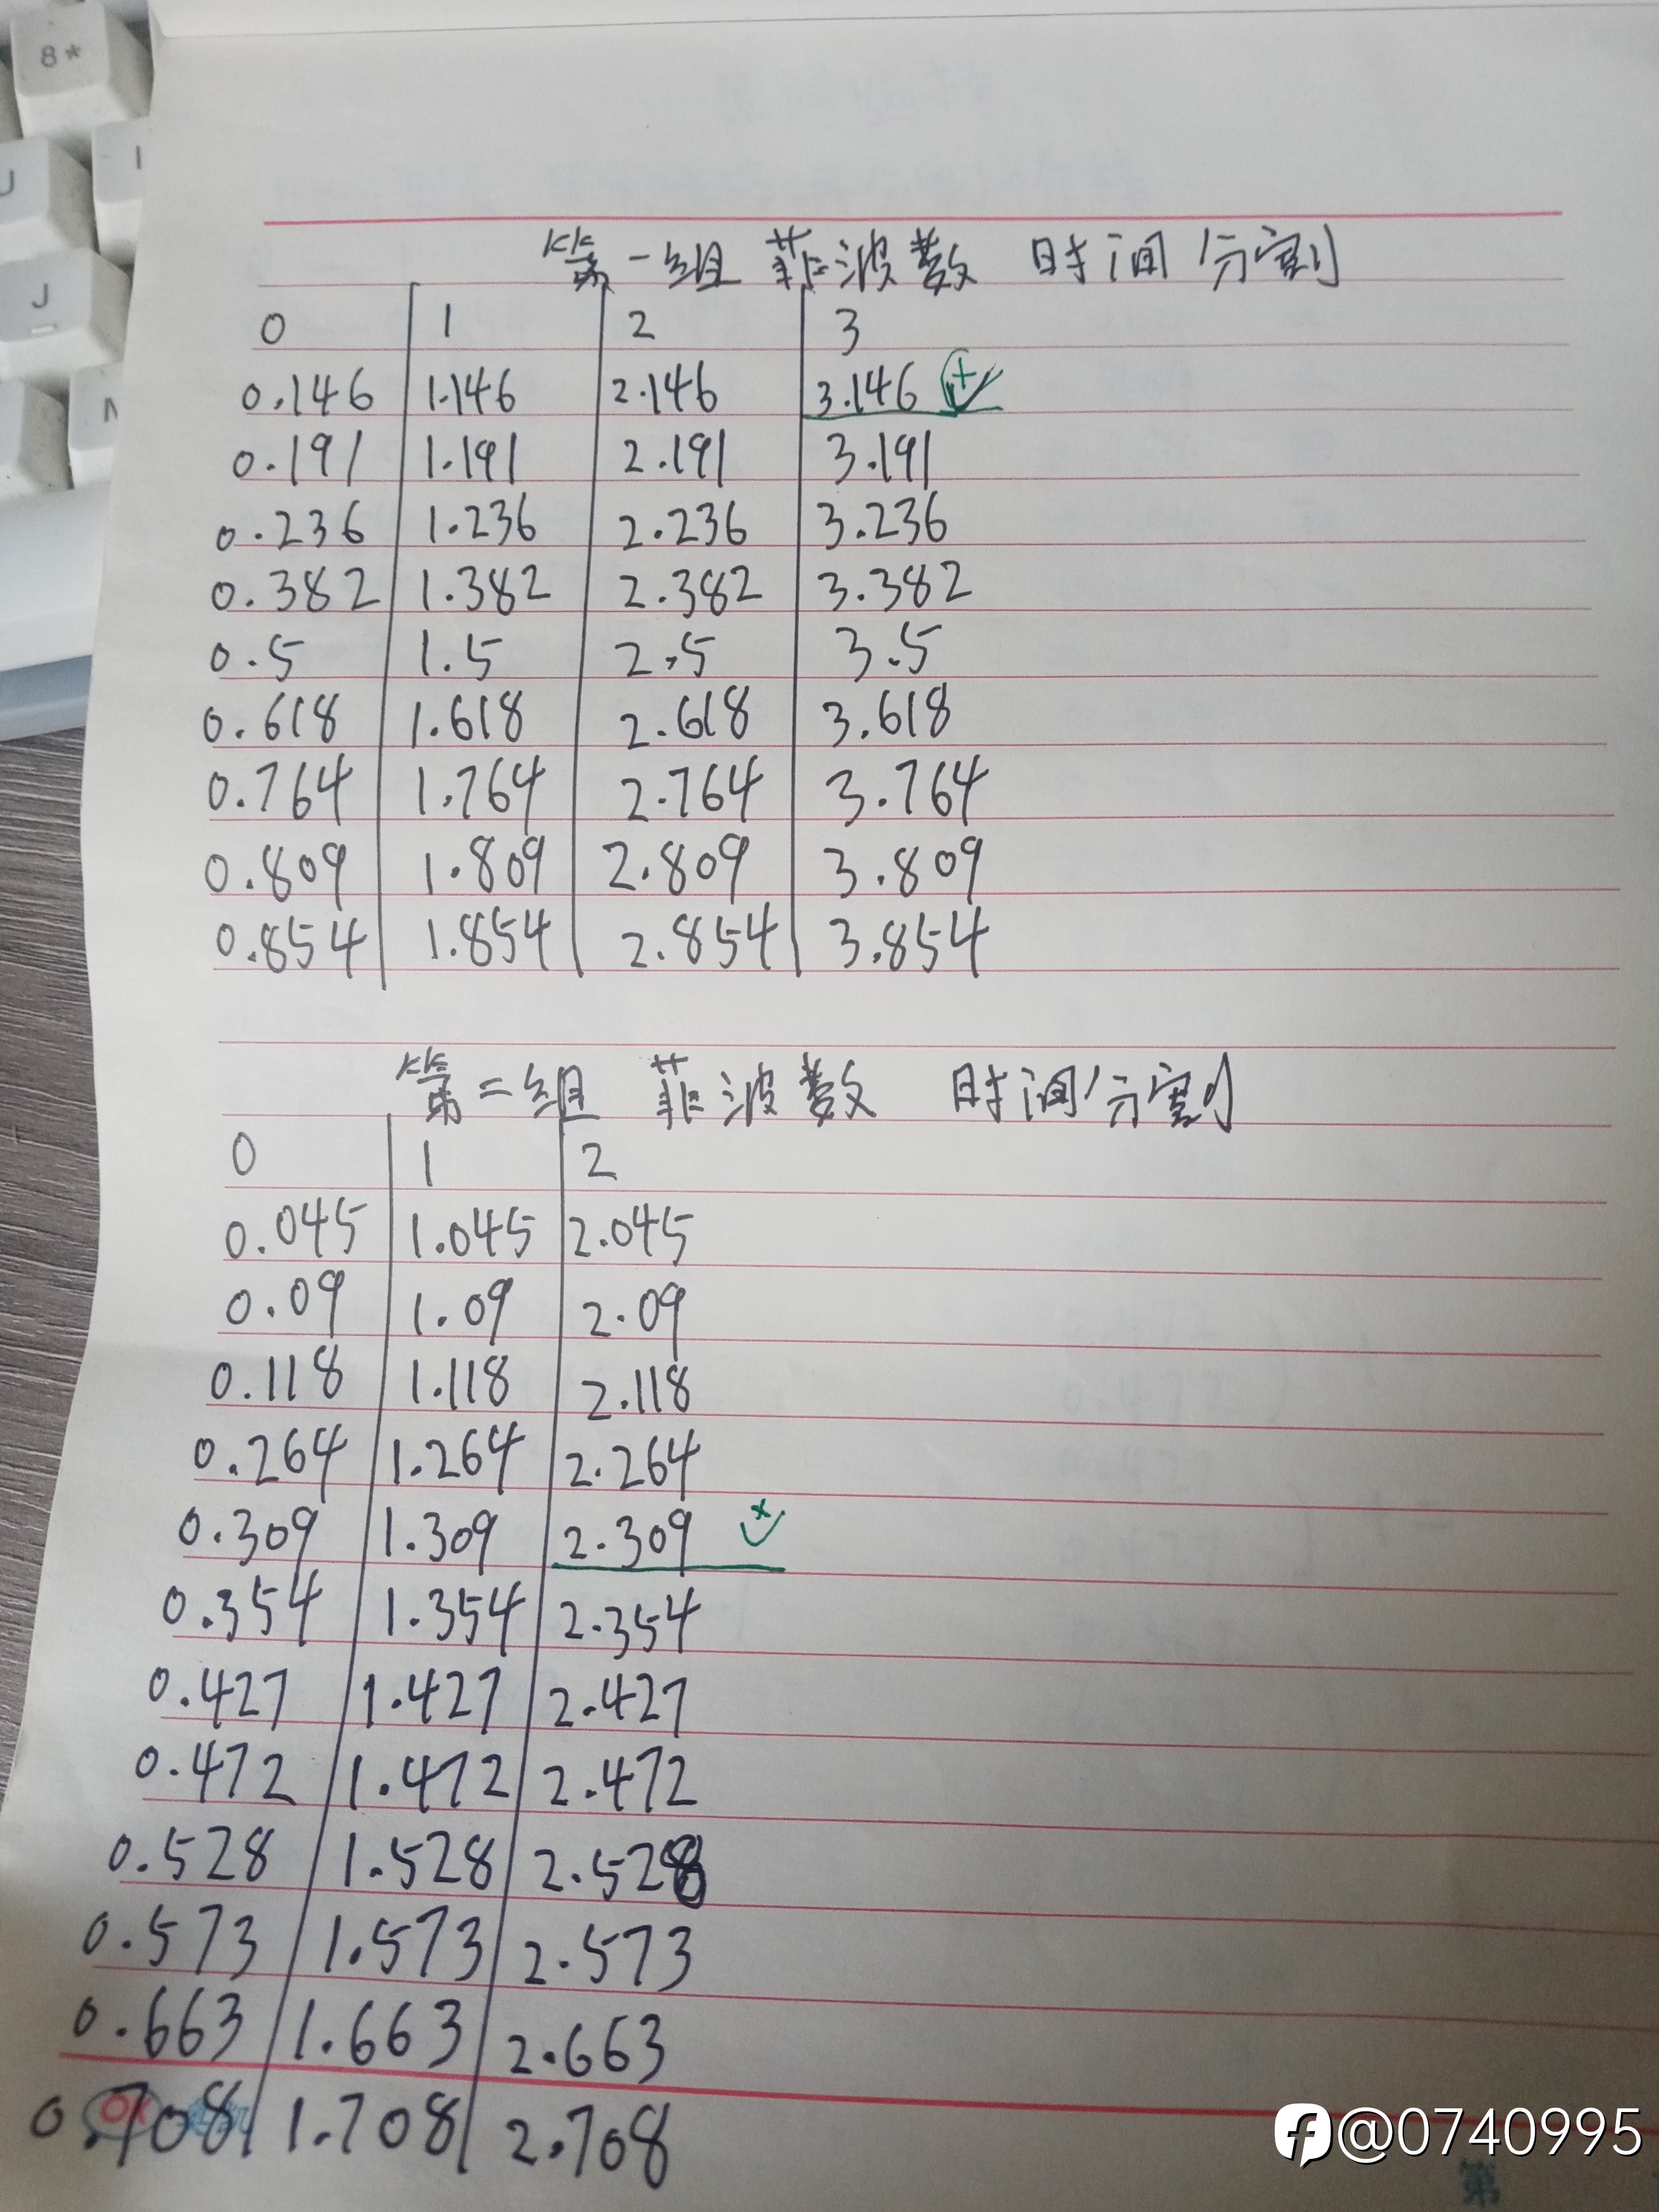 8 *
J
第一组 菲波数 时间分割
0 1 2 3
0.146 1.146 2.146 3.146 +
0.191 1.191 2.191 3.191
0.236 1.236 2.236 3.236
0.382 1.382 2.382 3.382
0.5 1.5 2.5 3.5
0.618 1.618 2.618 3.618
0.764 1.764 2.764 3.764
0.809 1.809 2.809 3.809
0.854 1.854 2.854 3.854
第二组 菲波数 时间分割
0 1 2
0.045 1.045 2.045
0.09 1.09 2.09
0.118 1.118 2.118
0.264 1.264 2.264
0.309 1.309 2.309 x
0.354 1.354 2.354
0.427 1.427 2.427
0.472 1.472 2.472
0.528 1.528 2.528
0.573 1.573 2.573
0.663 1.663 2.663
0.708 1.708 2.708
OK
@0740995
第